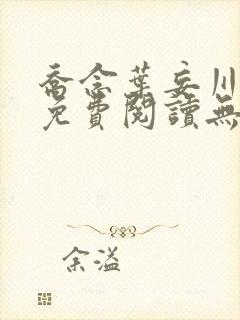 喬念葉妄川
免費閱讀無
余溢